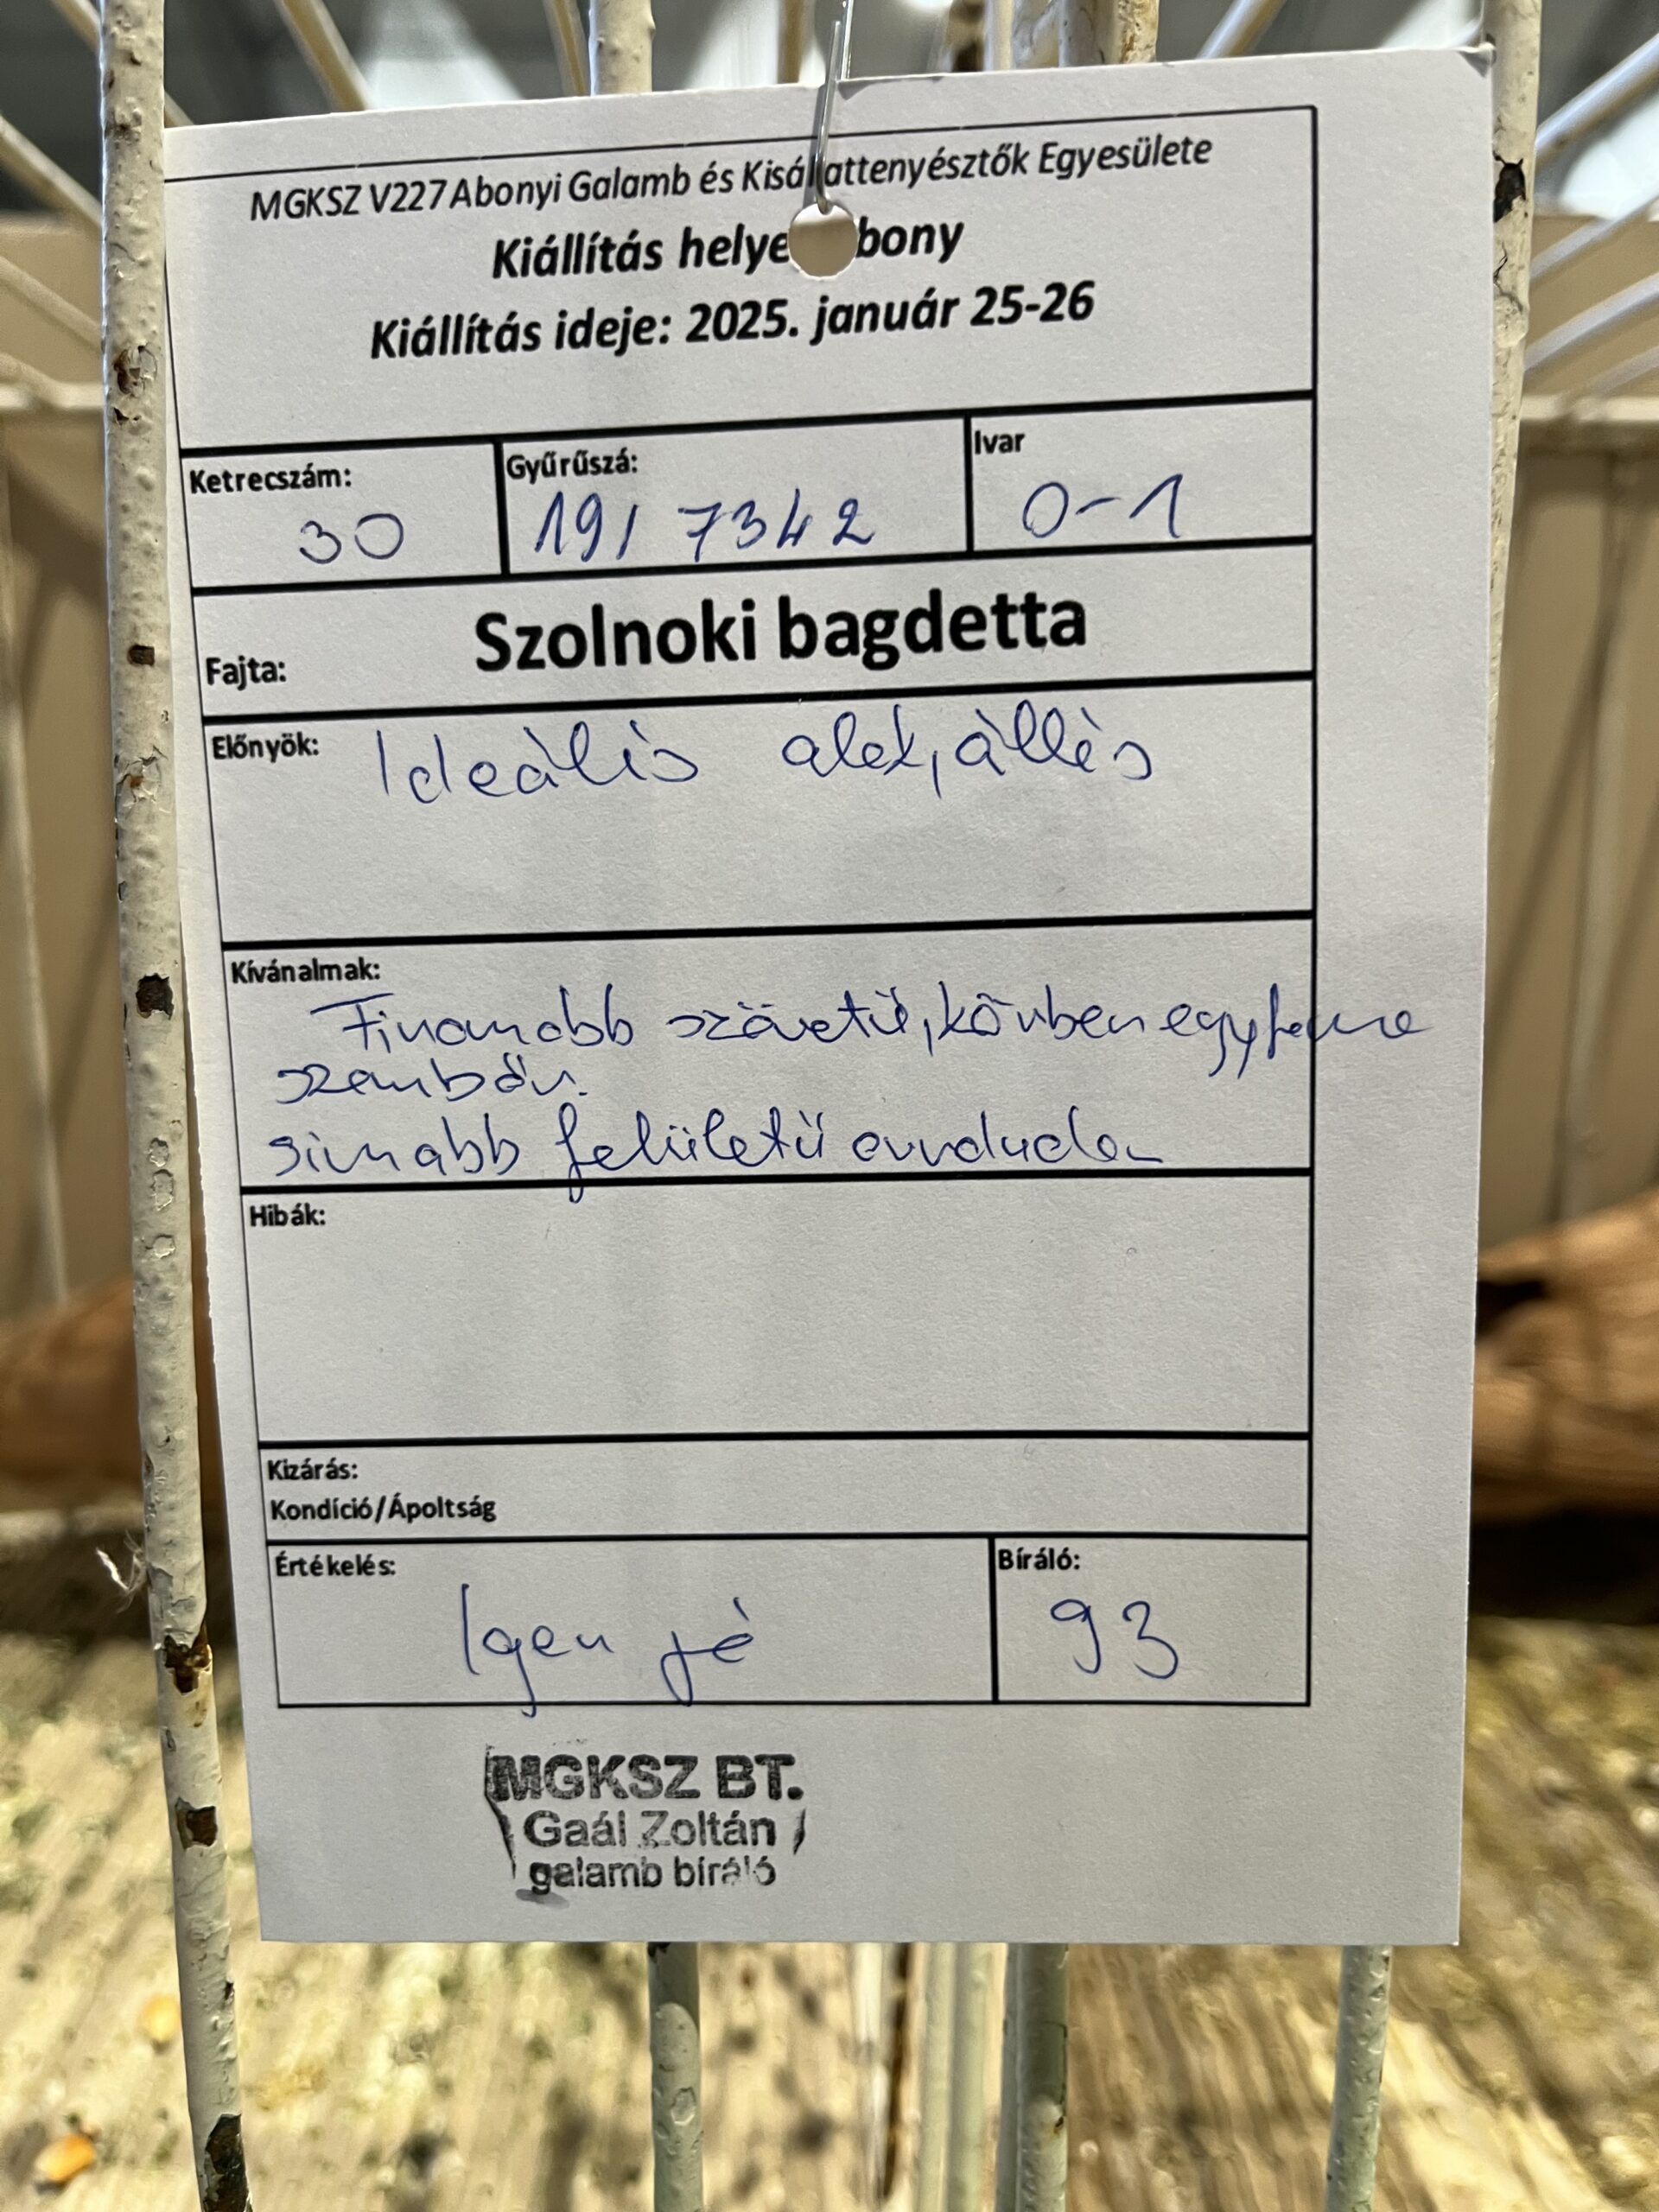 MGKSZ V227 Abonyi Galamb és Kisállattenyésztők Egyesülete
Kiállítás helye bony
Kiállítás ideje: 2025. január 25-26
Ketrecszám: Gyűrűszá: Ivar
30 19/ 7342 0-1
Fajta: Szolnoki bagdetta
Előnyök: Ideális alak, állás
Kívánalmak:
Finomabb szövetű, körben egyforma
szembőr.
simább felületű orrdudor
Hibák:
Kizárás:
Kondíció/Ápoltság
Értékelés: Bíráló:
Igen jó 93
MGKSZ BT.
Gaál Zoltán
galamb bíráló